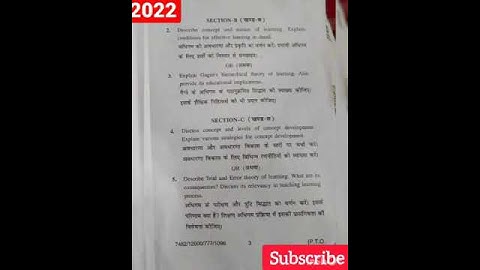 2022
SECTION-B (खण्ड-ब)
2. Describe concept and nature of learning. Explain
conditions for effective learning in detail.
अधिगम की अवधारणा और प्रकृति का वर्णन करें। प्रभावी अधिगम
के लिए शर्तों को विस्तार से समझाइए।
OR (अथवा)
3. Explain Gagne's hierarchical theory of learning. Also
provide its educational implications.
गैग्ने के अधिगम के पदानुक्रमित सिद्धांत की व्याख्या कीजिए।
इसके शैक्षिक निहितार्थ को भी प्रदान कीजिए।
SECTION-C (खण्ड-स)
4. Discuss concept and levels of concept development.
Explain various strategies for concept development.
अवधारणा और अवधारणा विकास के स्तरों पर चर्चा करें।
अवधारणा विकास के लिए विभिन्न रणनीतियों की व्याख्या करें।
OR (अथवा)
5. Describe Trial and Error theory of learning. What are its
consequences? Discuss its relevancy in teaching learning
process.
अधिगम के परीक्षण और त्रुटि सिद्धांत का वर्णन करें। इसके
परिणाम क्या हैं? शिक्षण अधिगम प्रक्रिया में इसकी प्रासंगिकता की
विवेचना कीजिए।
7482/12000/777/1096 3 [P.T.O.
Subscribe